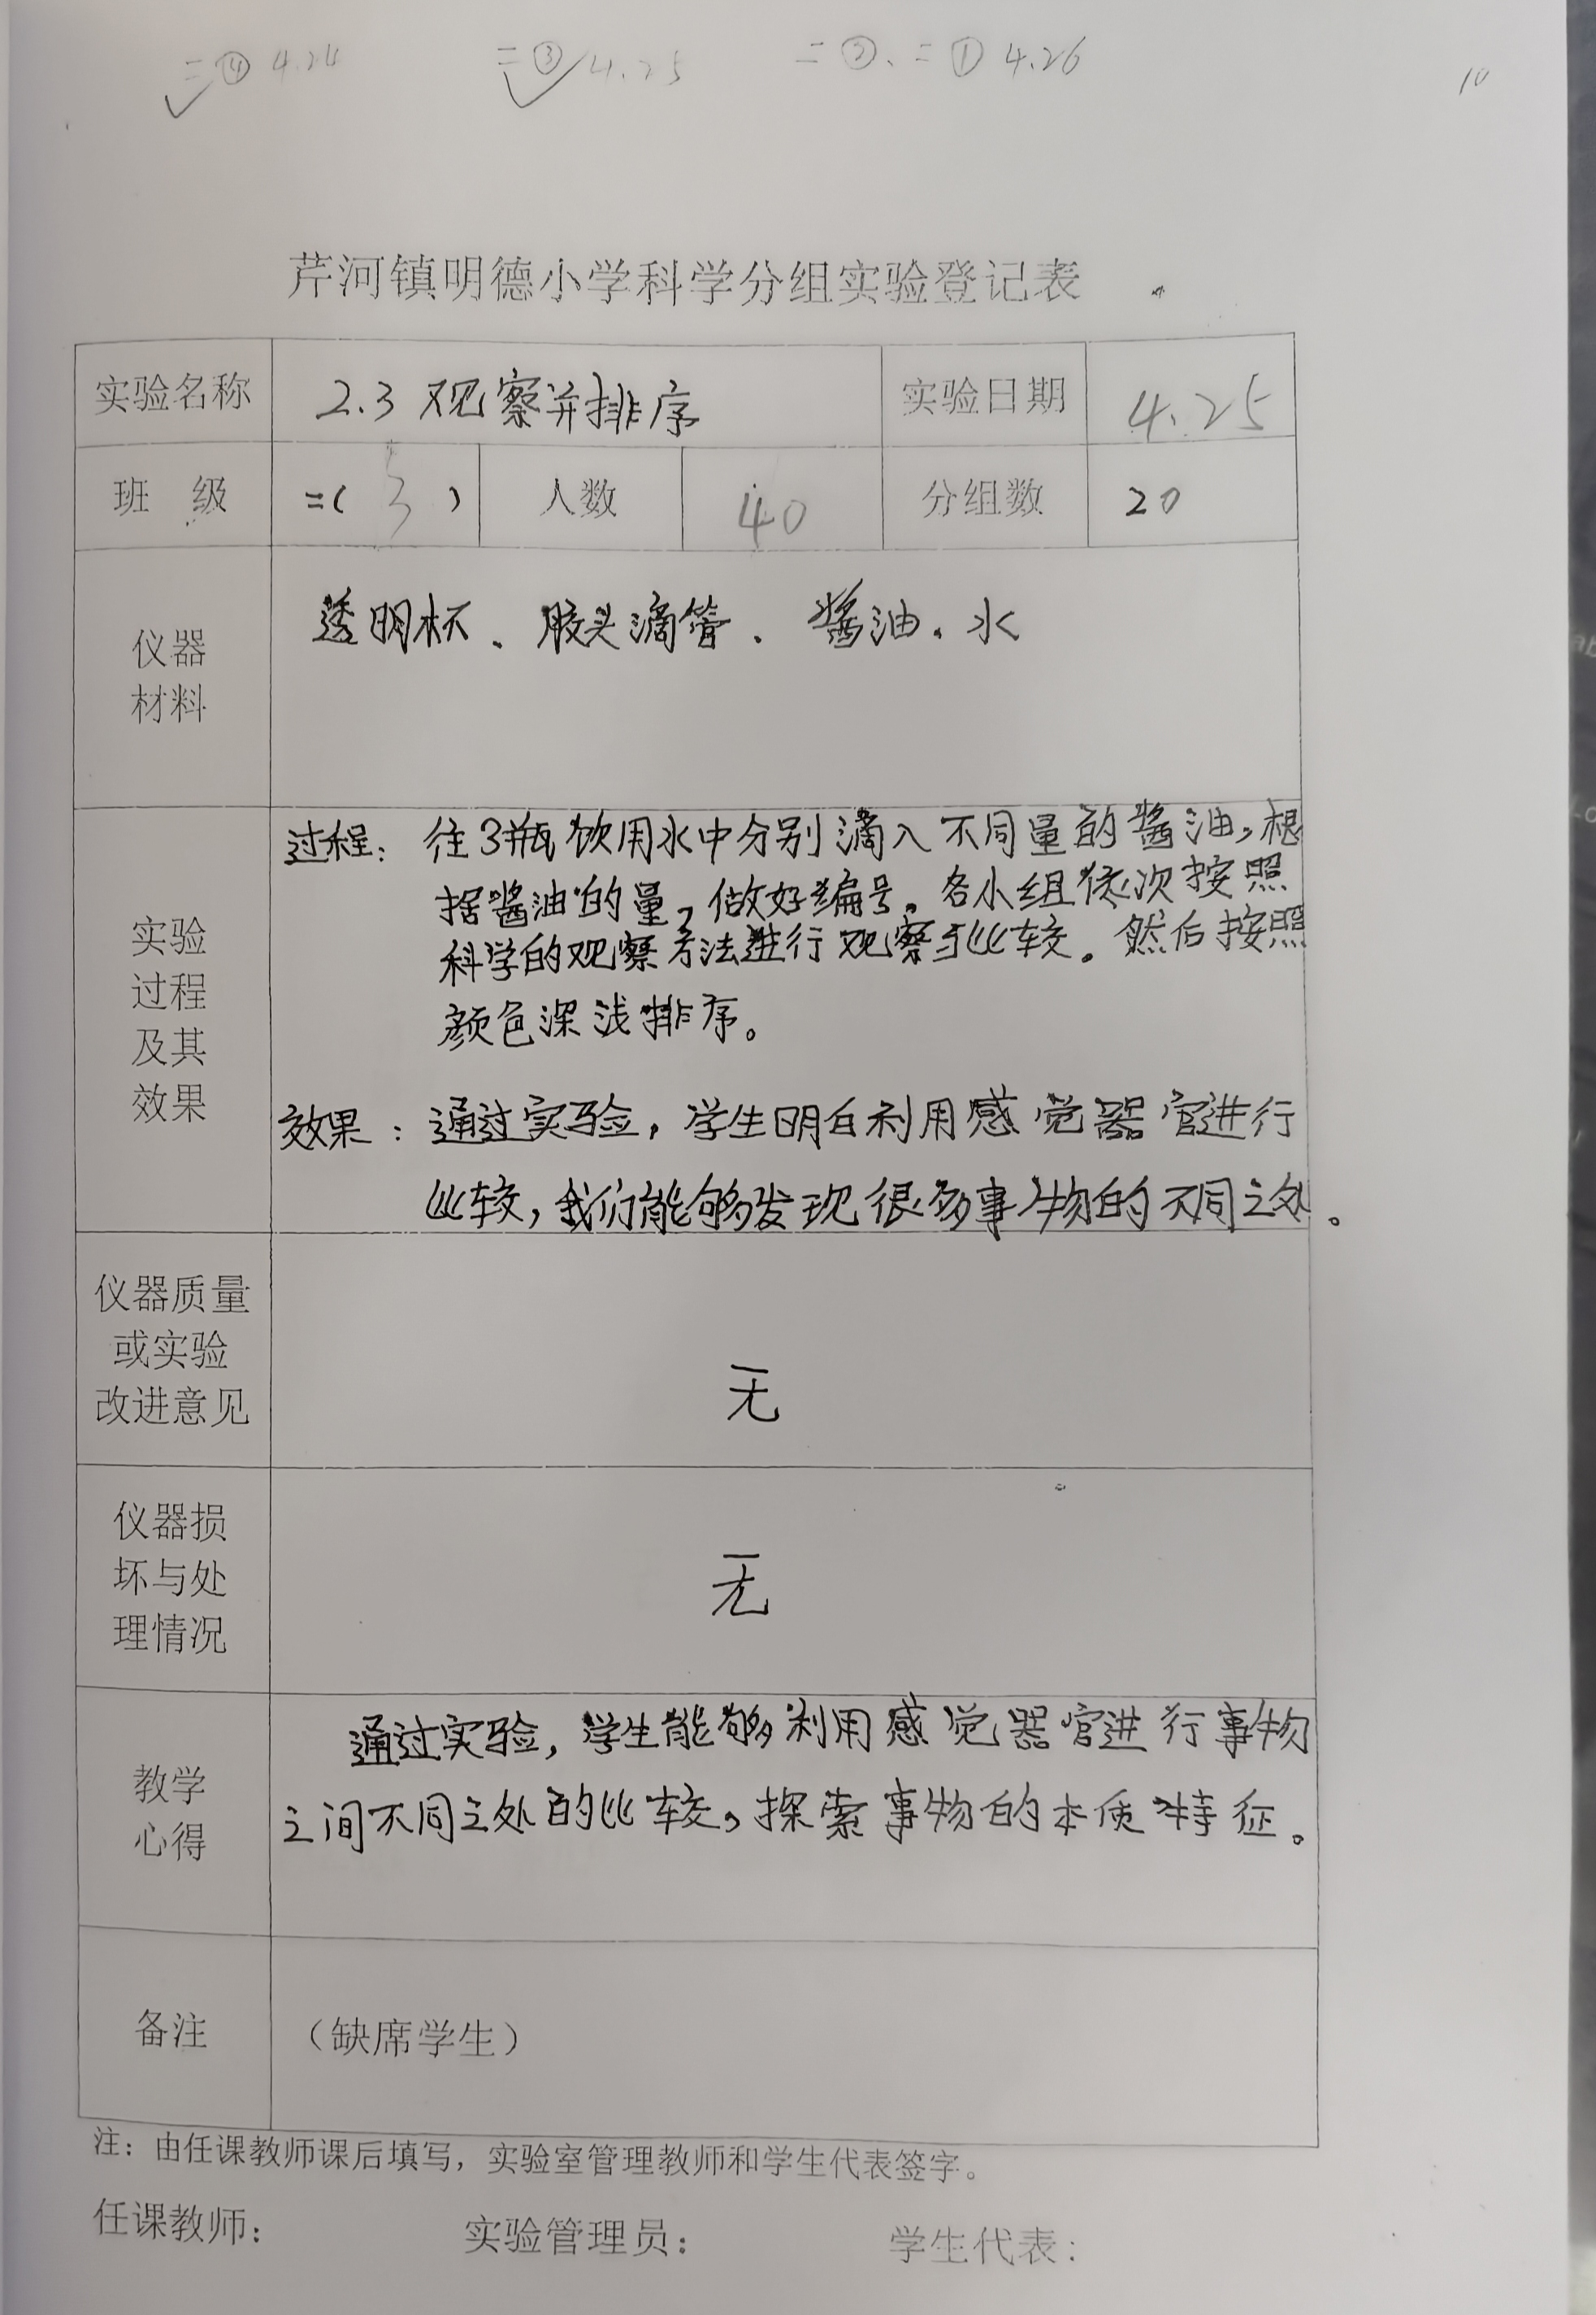 二④ 4.24 二③ 4.25 二②、二① 4.26
10
芹河镇明德小学科学分组实验登记表
实验名称 2.3 观察并排序 实验日期 4.25
班 级 二(3) 人数 40 分组数 20
仪器
材料
透明杯、胶头滴管、酱油、水
实验
过程
及其
效果
过程: 往3瓶饮用水中分别滴入不同量的酱油,根
据酱油的量,做好编号。各小组依次按照
科学的观察方法进行观察与比较。然后按照
颜色深浅排序。
效果: 通过实验,学生明白利用感觉器官进行
比较,我们能够发现很多事物的不同之处。
仪器质量
或实验
改进意见
无
仪器损
坏与处
理情况
无
教学
心得
通过实验,学生能够利用感觉器官进行事物
之间不同之处的比较,探索事物的本质特征。
备注 (缺席学生)
注: 由任课教师课后填写, 实验室管理教师和学生代表签字。
任课教师: 实验管理员: 学生代表: